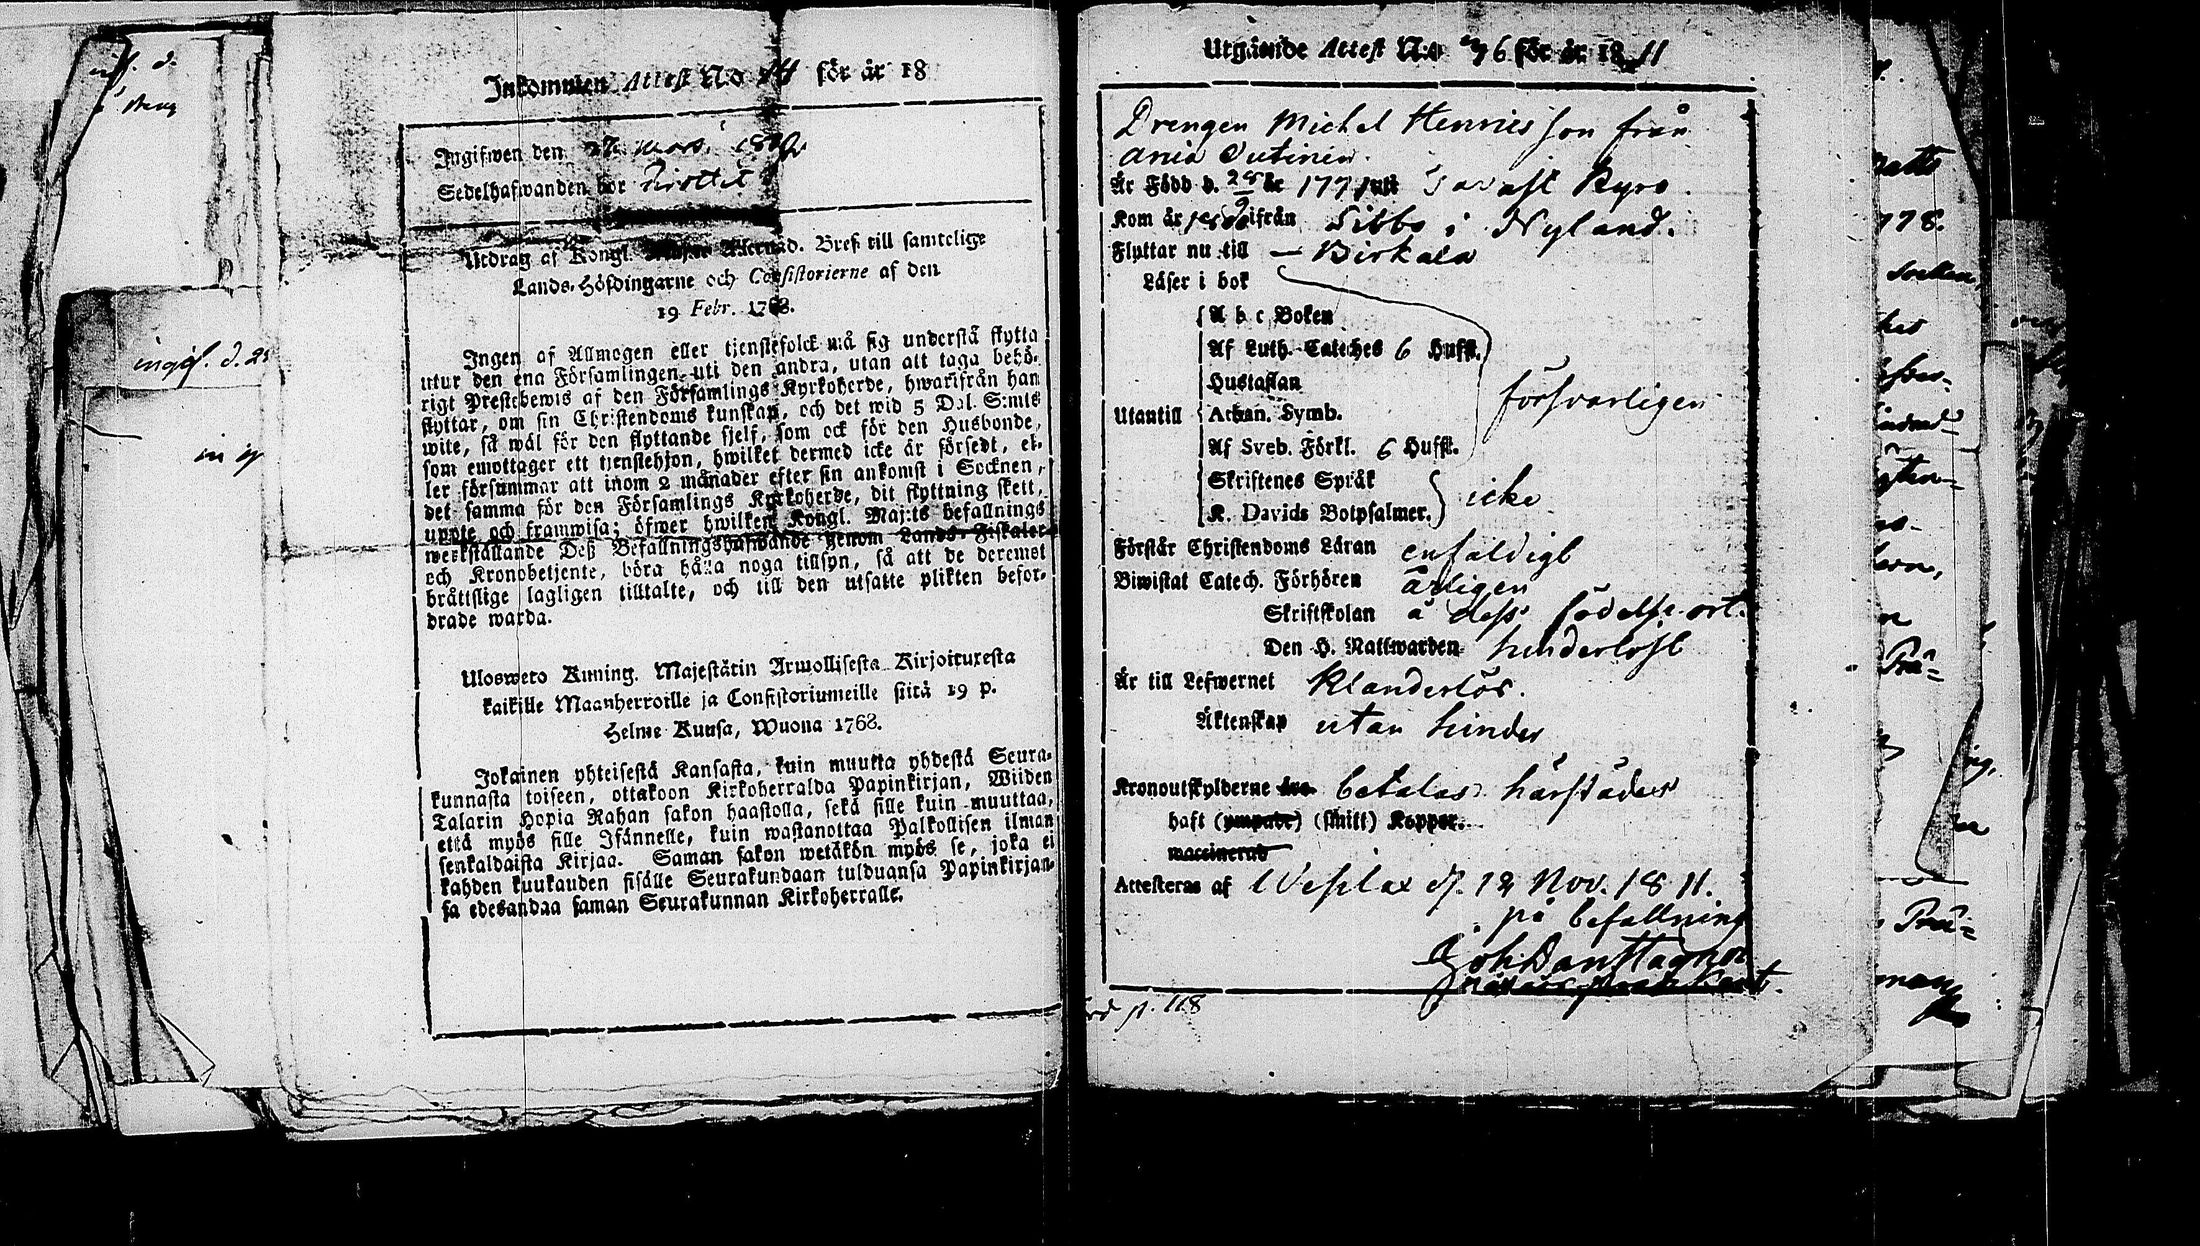 Inkommen Attest N:o 14 för år 18
Ingifwen den 27 mars 18
Sedelhafwanden bor
Utdrag af Kongl. Bref till samtelige
Lands-Höfdingarne och Consistorierne af den
19 Febr. 1768.
Ingen af Allmogen eller tjenstefolck må sig understå flytta
utur den ena Församlingen uti den andra, utan att taga behö-
rigt Prestebewis af den Församlings Kyrkoherde, hwarifrån han
flyttar, om sin Christendoms kunskap, och det wid 5 Dal. S:mts
wite, så wäl för den flyttande sjelf, som ock för den Husbonde,
som emottager ett tjenstehjon, hwilket dermed icke är försedt, el-
ler försummar att inom 2 månader efter sin ankomst i Socknen,
det samma för den Församlings Kyrkoherde, dit flyttning skett,
uppte och framwisa; öfwer hwilken Kongl. Maj:ts befallnings
werkställande Deß Befallningshafwande genom Lands-Fiskaler
och Kronobetjente, böra hålla noga tillsyn, så att de deremot
bråttslige lagligen tilltalte, och till den utsatte plikten befor-
drade warda.
Ulosweto Kuning. Majestätin Armollisesta Kirjoituxesta
kaikille Maanherroille ja Consistoriumeille siitä 19 p.
Helme Kuusa, Wuona 1768.
Jokainen yhteisestä Kansasta, kuin muutta yhdestä Seura-
kunnasta toiseen, ottakoon Kirkoherralda Papinkirjan, Wiiden
Talarin Hopia Rahan sakon haastolla, sekä sille kuin muuttaa,
että myös sille Isännelle, kuin wastanottaa Palkollisen ilman
senkaldaista Kirjaa. Saman sakon wetäkön myös se, joka ei
kahden kuukauden sisälle Seurakundaan tulduansa Papinkirjan-
sa edesandaa saman Seurakunnan Kirkoherralle.
Utgående Attest N:o 76 för år 1811
Drengen Michel Henricsson från
Ania Outinen.
Är Född d. 28 1771 uti Tavast Kyro.
Kom år ifrån Sibbo i Nyland.
Flyttar nu till — Birkala
Läser i bok
A b c Boken
Af Luth. Cateches 6 Hufst.
Hustaflan
Utantill Athan. Symb. försvarligen
Af Sveb. Förkl. 6 Hufst.
Skriftenes Språk
K. Davids Botpsalmer. icke
Förstår Christendoms Läran enfaldigt
Biwistat Catech. Förhören årligen
Skriftskolan å dess födelse ort.
Den H. Nattwarden hinderlöst
Är till Lefwernet Klanderlös.
Äktenskap utan hinder
Kronoutskylderne äro betalas härstädes
haft (ympade) (smitt) Koppor.
waccinerad
Attesteras af Wesilax d. 12 Nov. 1811.
på befallning
Joh: Dan
p. 118
ingif. d. 2